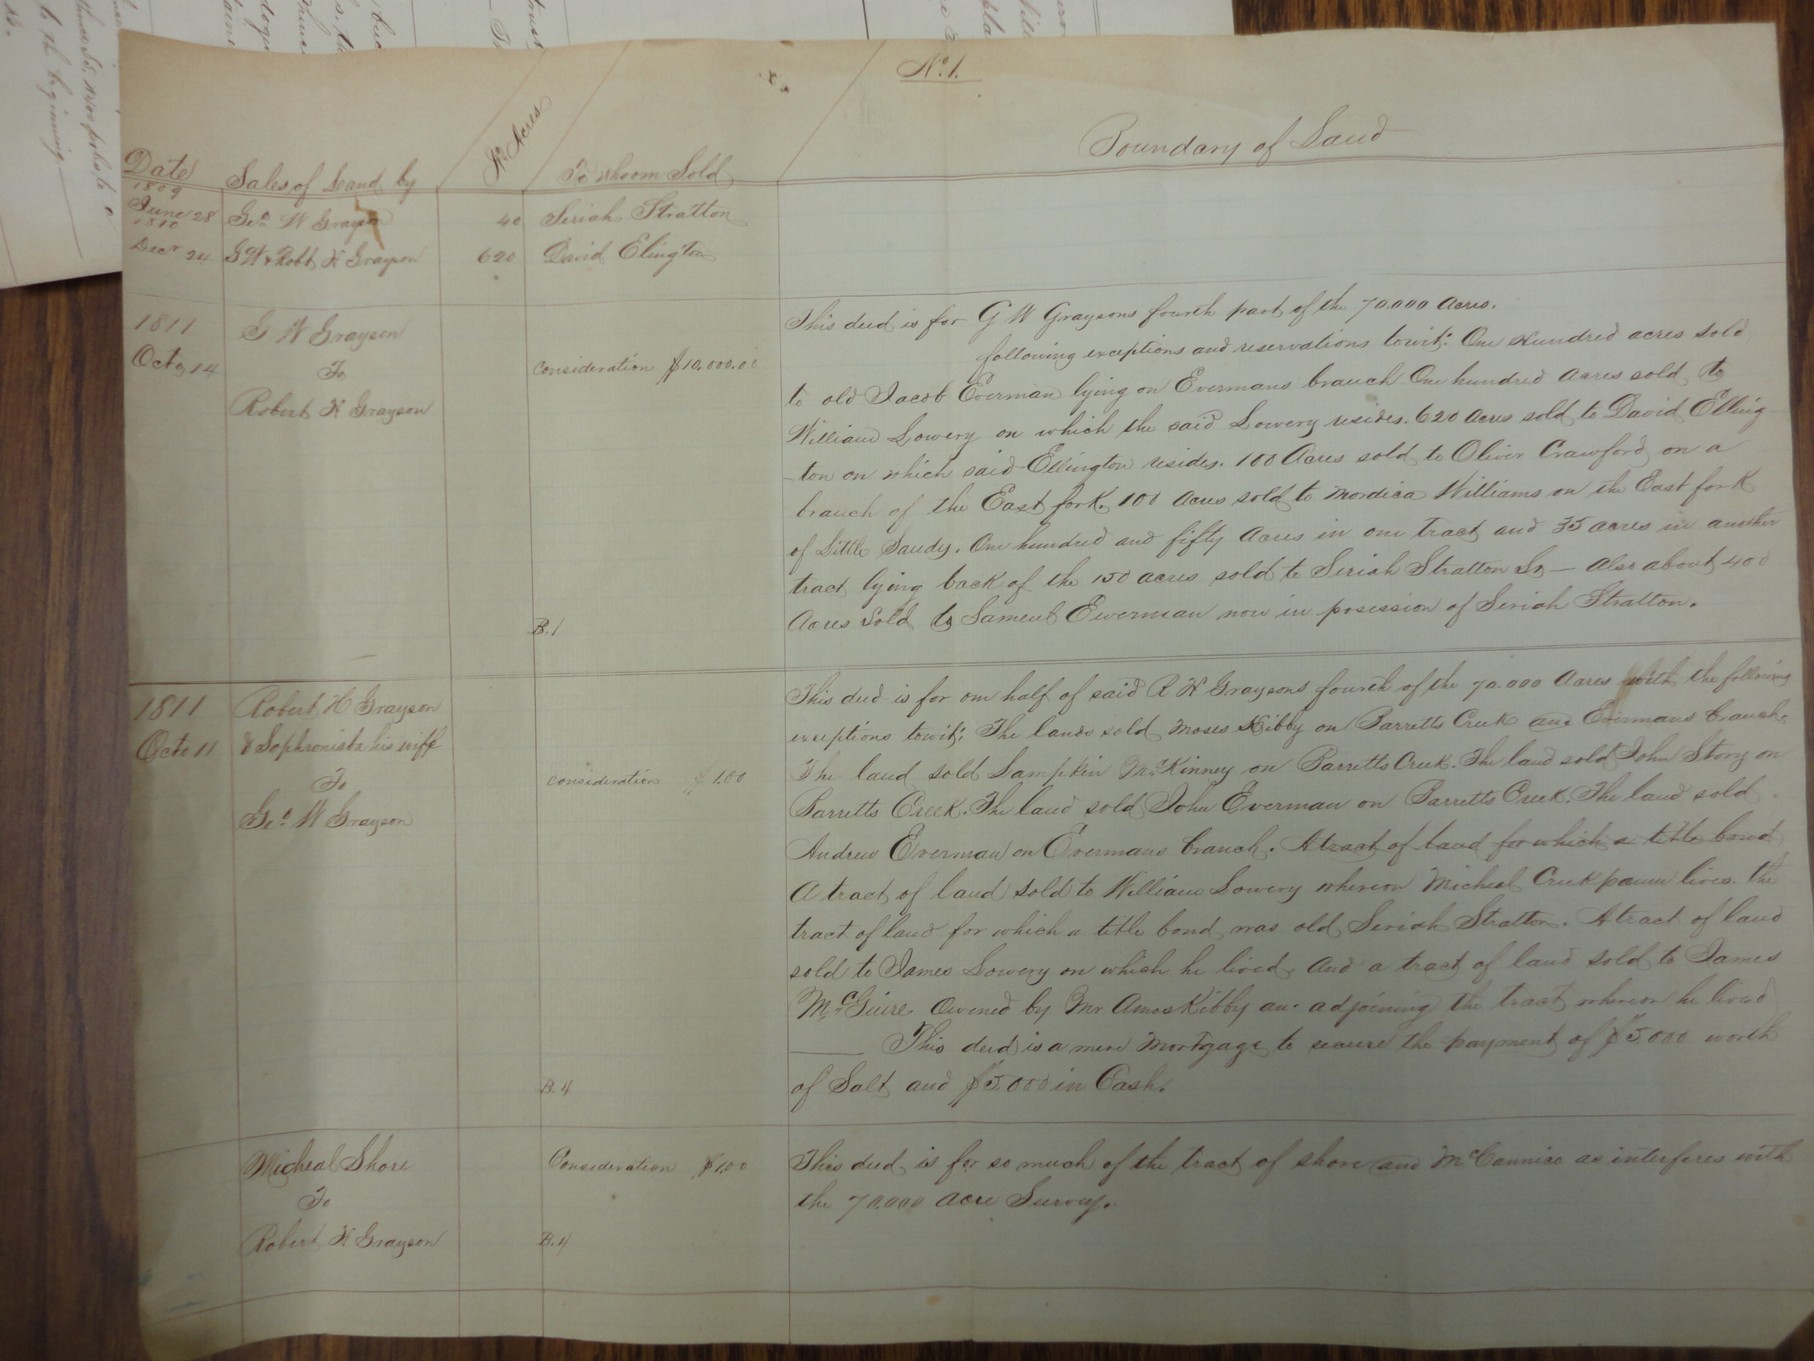 No. 1.
Date
Sales of Land by
No. Acres
To whoom Sold
Boundary of Land
1809
June 28
Geo W Grayson
40
Seriah Stratton
1810
Decr 24
G W & Robt H Grayson
620
David Elington
1811
Octo 14
G W Grayson
To
Robert H Grayson
Consideration $10,000.00
B.1
This deed is for G W Graysons fourth part of the 70.000 Acres.
following exceptions and reservations towit: One Hundred acres sold
to old Jacob Everman lying on Evermans branch One hundred Acres sold to
William Lowery on which the said Lowery resides. 620 Acres sold to David Elling
-ton on which said Ellington resides. 100 Acres sold to Oliver Crawford on a
branch of the East fork. 100 Acres sold to Mordica Williams on the East fork
of Little Sandy. One hundred and fifty Acres in one tract and 35 acres in another
tract lying back of the 150 acres sold to Seriah Stratton Sr — Also about 400
Acres Sold to Samuel Everman now in posession of Seriah Stratton.
1811
Octo 11
Robert H Grayson
& Sophronista his wife
To
Geo W Grayson
consideration $1.00
B.4
This deed is for one half of said R H Graysons fourth of the 70.000 Acres with the following
exceptions towit: The lands sold Moses Kibby on Barretts Creek and Evermans branch.
The land sold Lampkin McKinney on Barretts Creek. The land sold John Story on
Barretts Creek. The land sold John Everman on Barretts Creek. The land sold
Andrew Everman on Evermans branch. A tract of land for which a title bond
A tract of land sold to William Lowery whereon Micheal Creekpaum lives. the
tract of land for which a title bond was old Seriah Stratton. A tract of land
sold to James Lowery on which he lived. And a tract of land sold to James
McGuire owened by Mr Amos Kibby an. adjoining the tract whereon he lived
This deed is a mere Mortgage to secure the payment of $5.000 worth
of Salt and $5.000 in Cash.
Micheal Shore
To
Robert H Grayson
Consideration $1.00
B.4
This deed is for so much of the tract of shore and McCannico as interferes with
the 70.000 Acre Survey.
to the beginning